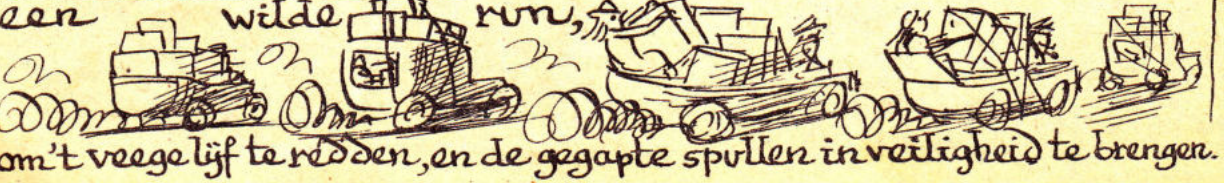 een wilde run,
om't veege lijf te redden, en de gegapte spullen in veiligheid te brengen.